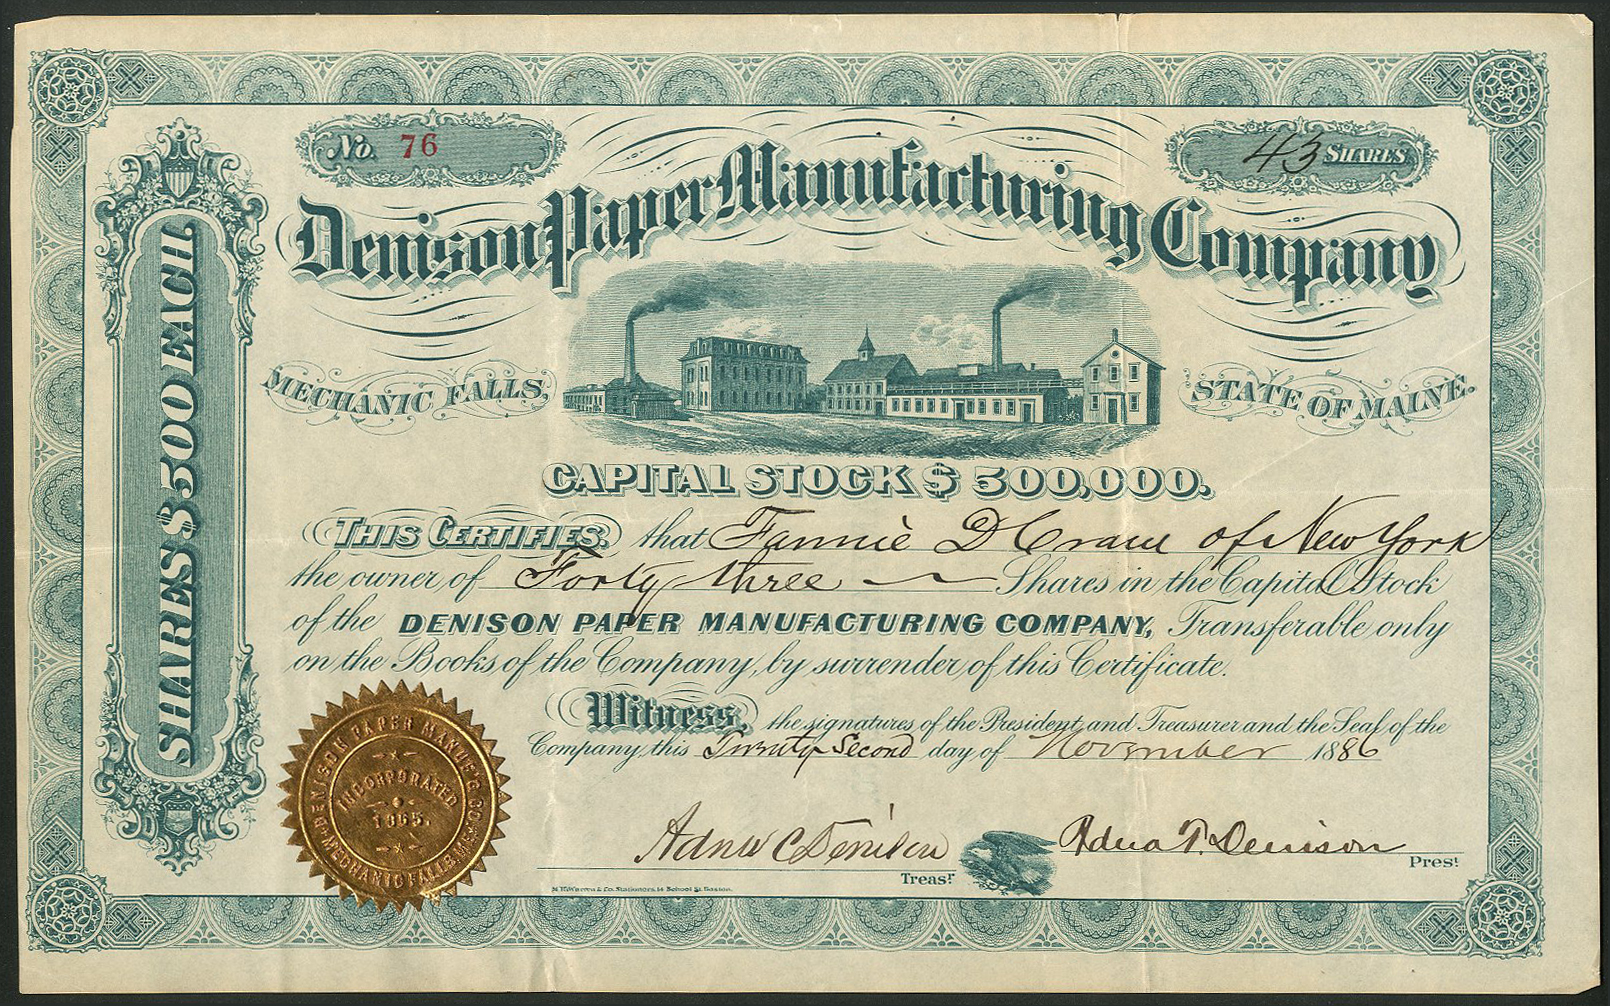 No. 76
43 SHARES
Denison Paper Manufacturing Company
SHARES $500 EACH
MECHANIC FALLS,
STATE OF MAINE.
CAPITAL STOCK $ 500,000.
THIS CERTIFIES, that Fannie D Crane of New York
the owner of Forty three Shares in the Capital Stock
of the DENISON PAPER MANUFACTURING COMPANY, Transferable only
on the Books of the Company, by surrender of this Certificate.
Witness, the signatures of the President and Treasurer and the Seal of the
Company, this Twenty Second day of November 1886
DENISON PAPER MANUF'G CO.
INCORPORATED
1865.
MECHANIC FALLS, ME.
Adna C Denison Treasr
Adna T. Denison Prest
& Co. Stationers, 14 School St. Boston.